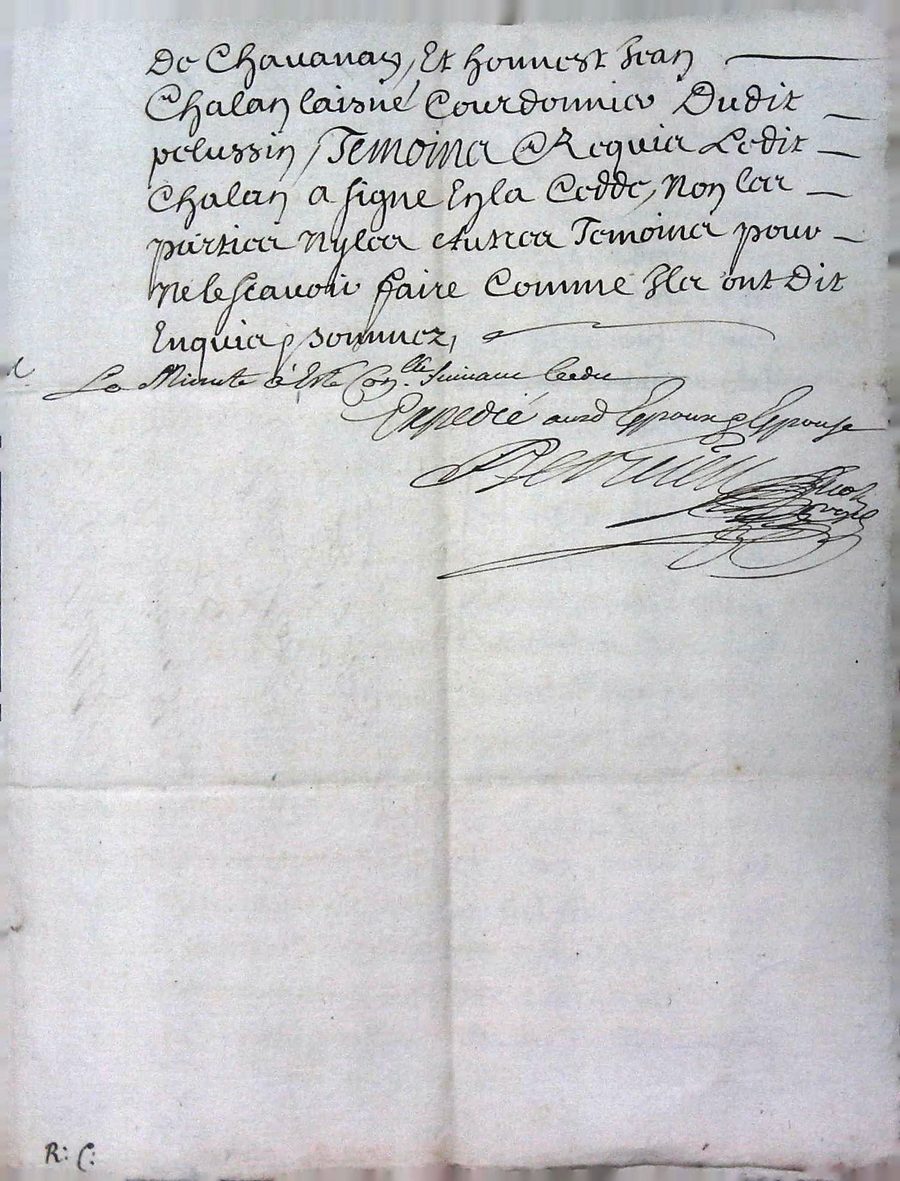 De Chavanay, Et honnest Jean
Chalan laisné Courdonnier Dudit
pelussin, Temoins Requis Ledit
Chalan a signe En la Cedde, Non les
parties Ny les autres Temoins pour
ne le scavoir faire Comme Ils ont Dit
Enquis & sommez,
La Minute a Esté Con.lle suivant Ledit
Expedié ausd Epoux & Epouse
R: C: